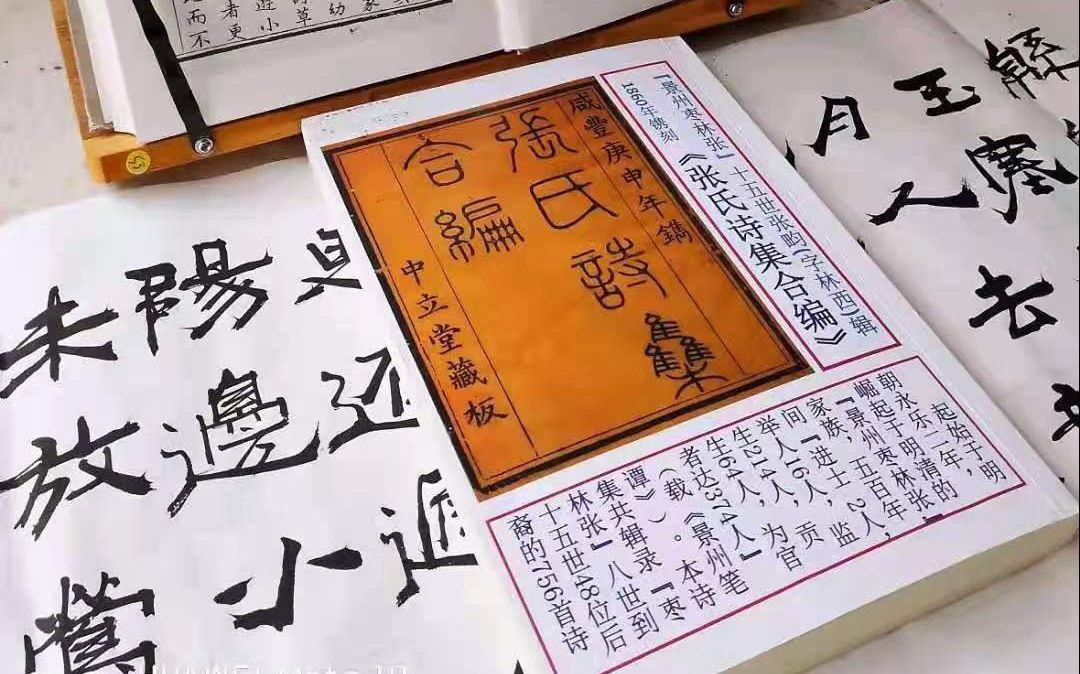 草幼
遊小
者更
而不
玉塞
月人去
『景州枣林张』十五世张畇(字林西)辑
1860年镌刻《张氏诗集合编》
咸豐庚申年鐫
張氏詩集
合編
中立堂藏板
起始于明
朝永乐二年，
崛起于明清的
『景州枣林张』
家族，五百年
间『进士2人，
举人16人，贡
生214人，监
生64人，为官
者达374人』
(载《景州笔
谭》)。本诗
集共辑录『枣
林张』八世到
十五世48位后
裔的756首诗
陽邊小
未放鶯